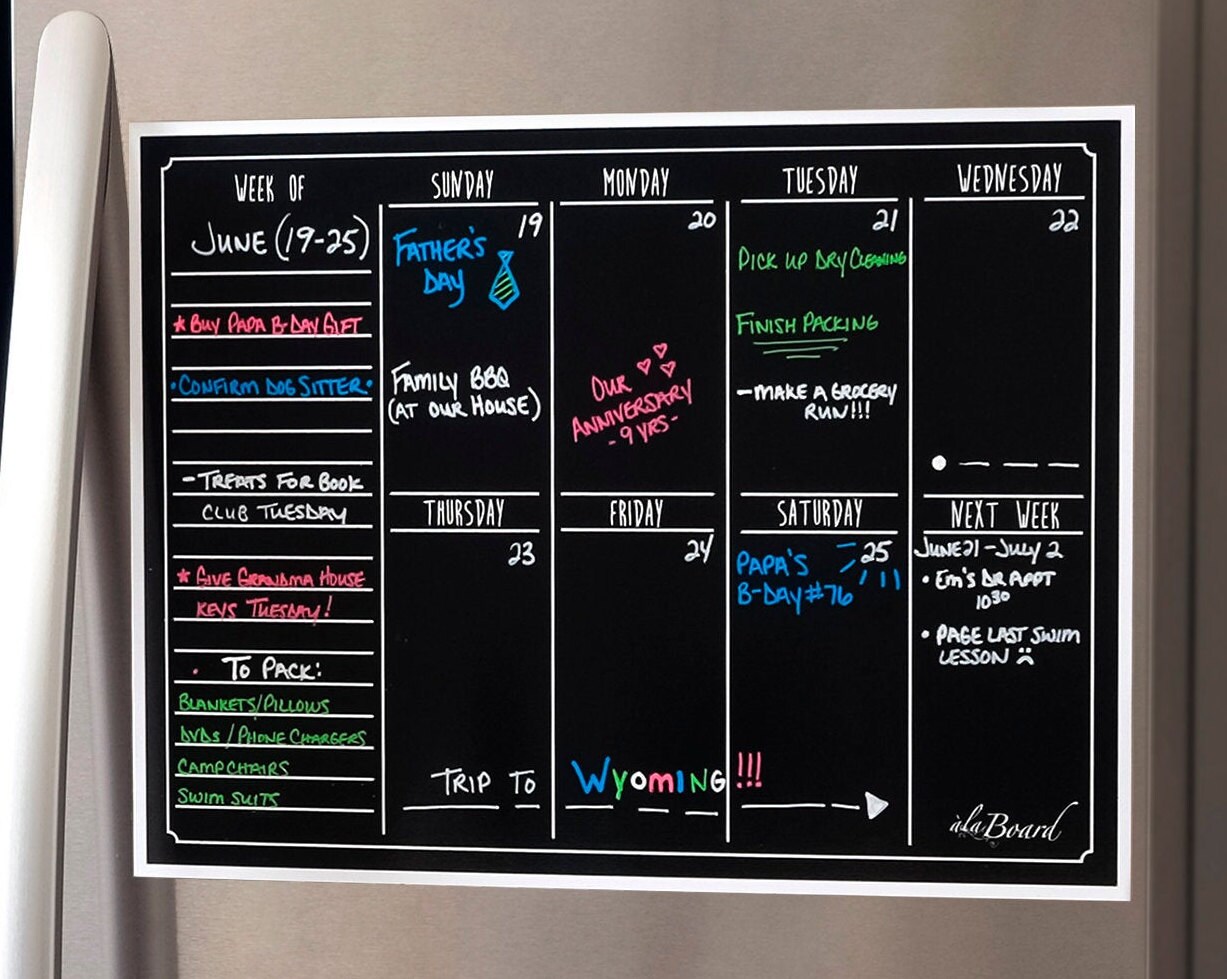 WEEK OF
JUNE (19-25)
* BUY PAPA B-DAY GIFT
• CONFIRM DOG SITTER •
- TREATS FOR BOOK
CLUB TUESDAY
* GIVE GRANDMA HOUSE
KEYS TUESDAY!
TO PACK:
BLANKETS/PILLOWS
DVDs / PHONE CHARGERS
CAMP CHAIRS
SWIM SUITS
SUNDAY
19
FATHER'S
DAY
FAMILY BBQ
(AT OUR HOUSE)
MONDAY
20
OUR
ANNIVERSARY
- 9 YRS -
TUESDAY
21
PICK UP DRY CLEANING
FINISH PACKING
- MAKE A GROCERY
RUN!!!
WEDNESDAY
22
THURSDAY
23
FRIDAY
24
SATURDAY
25
PAPA'S
B-DAY #76
TRIP TO WYOMING !!!
NEXT WEEK
JUNE 21 - JULY 2
• EM'S DR APPT
10:30
• PAGE LAST SWIM
LESSON
àla Board